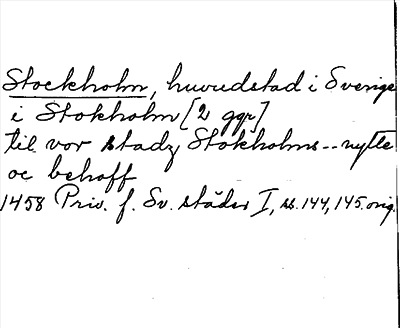 Stockholm, huvudstad i Sverige
i Stokholm [2 ggr]
til vor stadz Stokholms -- nytte
oc behoff
1458 Priv. f. Sv. städer I, ss. 144, 145. orig.